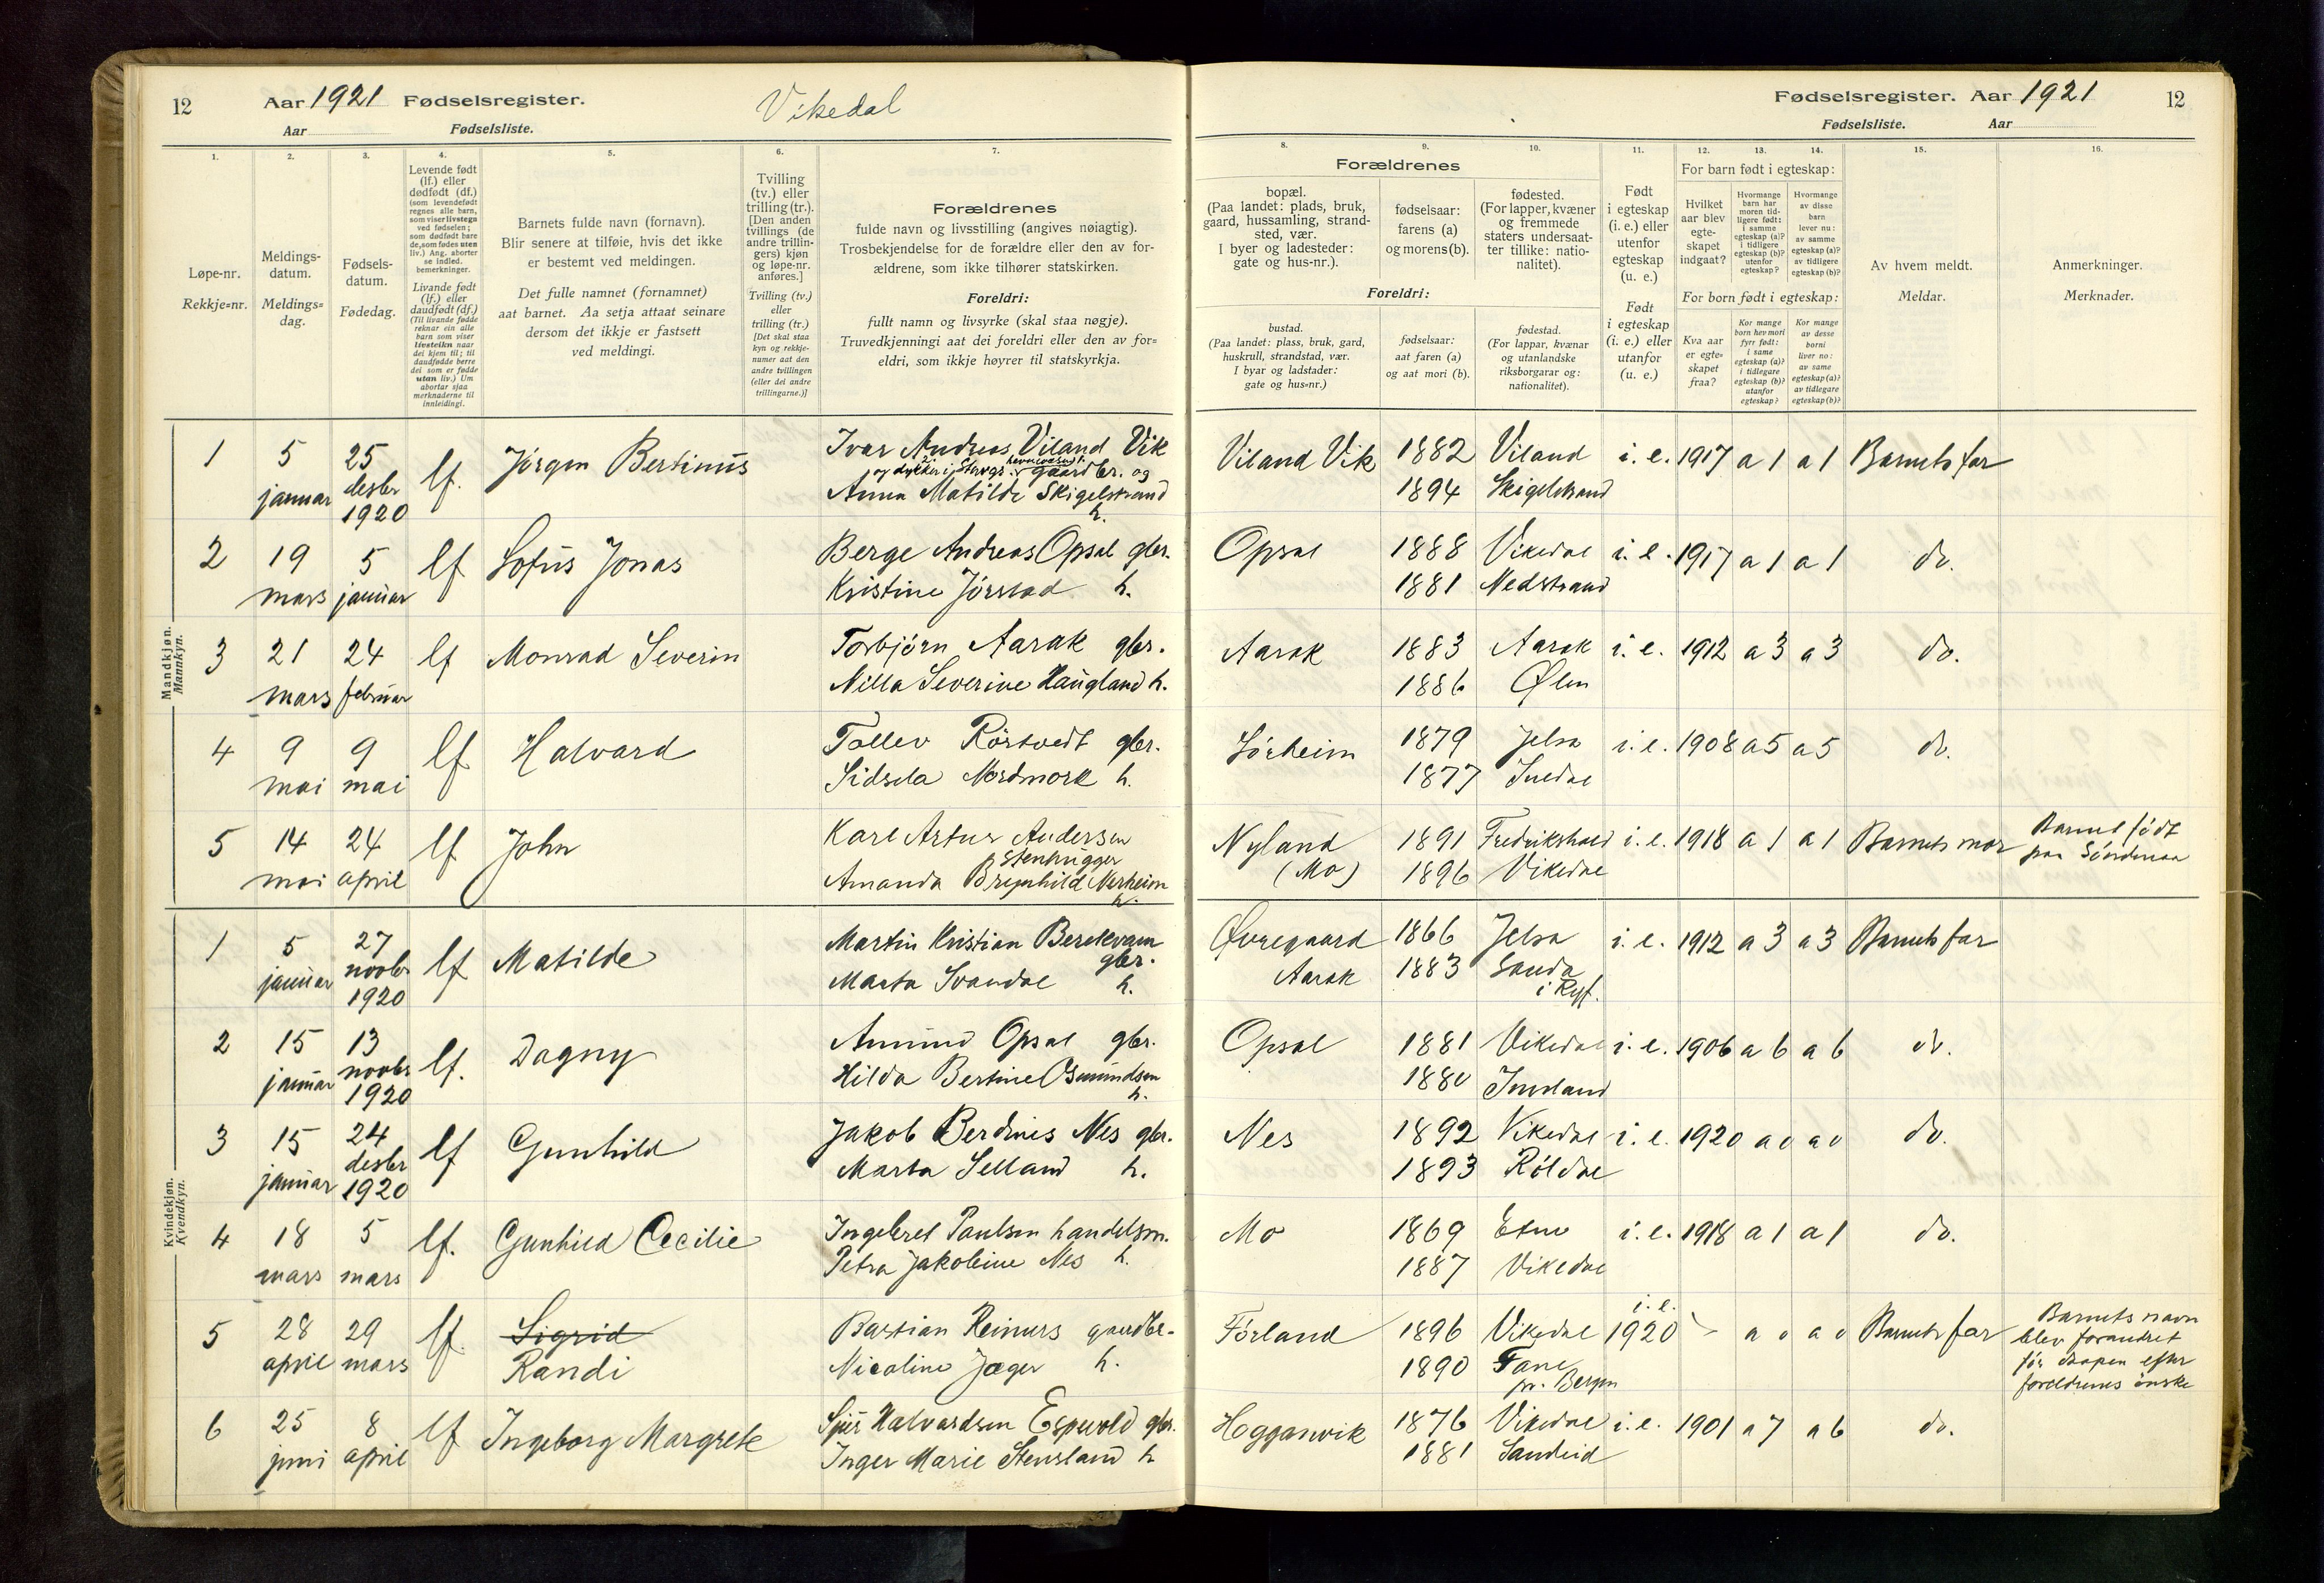 12
Aar 1921 Fødselsregister.
Vikedal
Aar
Fødselsliste.
1.
2.
3.
4.
5.
6.
7.
Løpe-nr.
Rekkje=nr.
Meldings-
datum.
Meldings=
dag.
Fødsels-
datum.
Fødedag.
Levende født
(lf.) eller
dødfødt (df.)
(som levendefødt
regnes alle barn,
som viser livstegn
ved fødselen;
som dødfødt bare
de, som fødes uten
liv.) Ang. aborter
se indled.
bemerkninger.
Livande født
(lf.) eller
daudfødt (df.)
(Til livande fødde
reknar ein alle
barn som viser
livsteikn naar
dei kjem til; til
daudfødde berre
dei som er fødde
utan liv.) Um
abortar sjaa
merknaderne til
innleidingi.
Barnets fulde navn (fornavn).
Blir senere at tilføie, hvis det ikke
er bestemt ved meldingen.
Det fulle namnet (fornamnet)
aat barnet. Aa setja attaat seinare
dersom det ikkje er fastsett
ved meldingi.
Tvilling
(tv.) eller
trilling (tr.).
[Den anden
tvillings (de
andre trillin-
gers) kjøn
og løpe-nr.
anføres.]
Tvilling (tv.)
eller
trilling (tr.)
[Det skal staa
kyn og rekkje-
numer aat den
andre tvillingen
(eller dei andre
trillingarne.)]
Forældrenes
fulde navn og livsstilling (angives nøiagtig).
Trosbekjendelse for de forældre eller den av for-
ældrene, som ikke tilhører statskirken.
Foreldri:
fullt namn og livsyrke (skal staa nøgje).
Truvedkjenningi aat dei foreldri eller den av for=
eldri, som ikkje høyrer til statskyrkja.
Mandkjøn.
Mannkyn.
1 5 januar 25 desbr 1920 lf. Jörgen Bertinus
Ivar Andreas Viland Vik
og dykker i Stavgr. havnevæsen gaardbr. og
Anna Matilde Skigelstrand
h.
2 19 mars 5 januar lf Sofus Jonas
Berge Andreas Opsal gbr.
Kristine Jörstad h.
3 21 mars 24 februar lf Monrad Severin
Torbjörn Aarak gbr.
Nilla Severine Haugland h.
4 9 mai 9 mai lf Halvard
Tollev Rörtvedt gbr.
Sidsela Nordmork h.
5 14 mai 24 april lf John
Karl Artur Andersen
Stenhugger
Amanda Brynhild Nerheim
h.
Kvindekjøn.
Kvendkyn.
1 5 januar 27 novbr 1920 lf Matilde
Martin Kristian Berekvam
gbr.
Marta Svandal h.
2 15 januar 13 novbr 1920 lf. Dagny
Amund Opsal gbr.
Hilda Bertine Osmundsen
h.
3 15 januar 24 desbr 1920 lf Gunhild
Jakob Berdines Nes gbr.
Marta Selland h.
4 18 mars 5 mars lf. Gunhild Cecilie
Ingebret Paulsen handelsm.
Petra Jakobine Nes h.
5 28 april 29 mars lf. Sigrid
Randi
Bastian Reinurs gaardbr.
Nicoline Jæger h.
6 25 juni 8 april lf Ingeborg Margrete
Halvardsen Espevold gbr.
Inger Marie Stensland h
Fødselsregister. Aar 1921
12
Fødselsliste. Aar
8.
9.
10.
11.
12.
13.
14.
15.
16.
Forældrenes
bopæl.
(Paa landet: plads, bruk,
gaard, hussamling, strand-
sted, vær.
I byer og ladesteder:
gate og hus-nr.).
fødselsaar:
farens (a)
og morens (b).
fødested.
(For lapper, kvæner
og fremmede
staters undersaat-
ter tillike: natio-
nalitet).
Foreldri:
bustad.
(Paa landet: plass, bruk, gard,
huskrull, strandstad, vær.
I byar og ladstader:
gate og hus-nr.)
fødselsaar:
aat faren (a)
og aat mori (b).
fødestad.
(For lappar, kvænar
og utanlandske
riksborgarar og:
nationalitet).
Født
i egteskap
(i. e.) eller
utenfor
egteskap
(u. e.)
Født
i egteskap
(i. e.) eller
utanfor
(u. e.)
For barn født i egteskap:
Hvilket
aar blev
egte-
skapet
indgaat?
Hvormange
barn har
moren tid-
ligere født:
i samme
egteskap (a)?
i tidligere
egteskap (b)?
utenfor
egteskap?
Hvormange
av disse
barn
lever nu:
av samme
egteskap (a)?
av tidligere
egteskap (b)?
For born født i egteskap:
Kva aar
er egte-
skapet
fraa?
Kor mange
born hev mori
fyrr født:
i same
egteskap (a)?
i tidlegare
egteskap (b)?
utanfor
egteskap?
Kor mange
av desse
borni
liver no:
av same
egteskap (a)?
av tidlegare
egteskap (b)?
Av hvem meldt.
Meldar.
Anmerkninger.
Merknader.
Viland Vik 1882 Viland i. e. 1917 a 1 a 1 Barnets far
1894 Skigelstrand
Opsal 1888 Vikedal i. e. 1917 a 1 a 1 do.
1881 Nedstrand
Aarak 1883 Aarak i. e. 1912 a 3 a 3 do.
1886 Ølen
Sörheim 1879 Jelsa i. e. 1908 a 5 a 5 do.
1877 Suldal
Nyland 1891 Fredrikshald i. e. 1918 a 1 a 1 Barnets mor Barnet födt
(Mo) 1896 Vikedal paa Söndenaa
Øvregaard 1866 Jelsa i. e. 1912 a 3 a 3 Barnets far
Aarak 1883 Sauda
i Ryf.
Opsal 1881 Vikedal i. e. 1906 a 6 a 6 do.
1880 Imsland
Nes 1892 Vikedal i. e. 1920 a 0 a 0 do.
1893 Röldal
Mo 1869 Etne i. e. 1918 a 1 a 1 do.
1887 Vikedal
Förland 1896 Vikedal i. e. 1920 a 0 a 0 Barnets far
1890 Fane
pr. Bergen
Barnets navn
blev forandret
för daapen efter
foreldrenes önske
Hogganvik 1876 Vikedal i. e. 1901 a 7 a 6 do.
1881 Sandeid